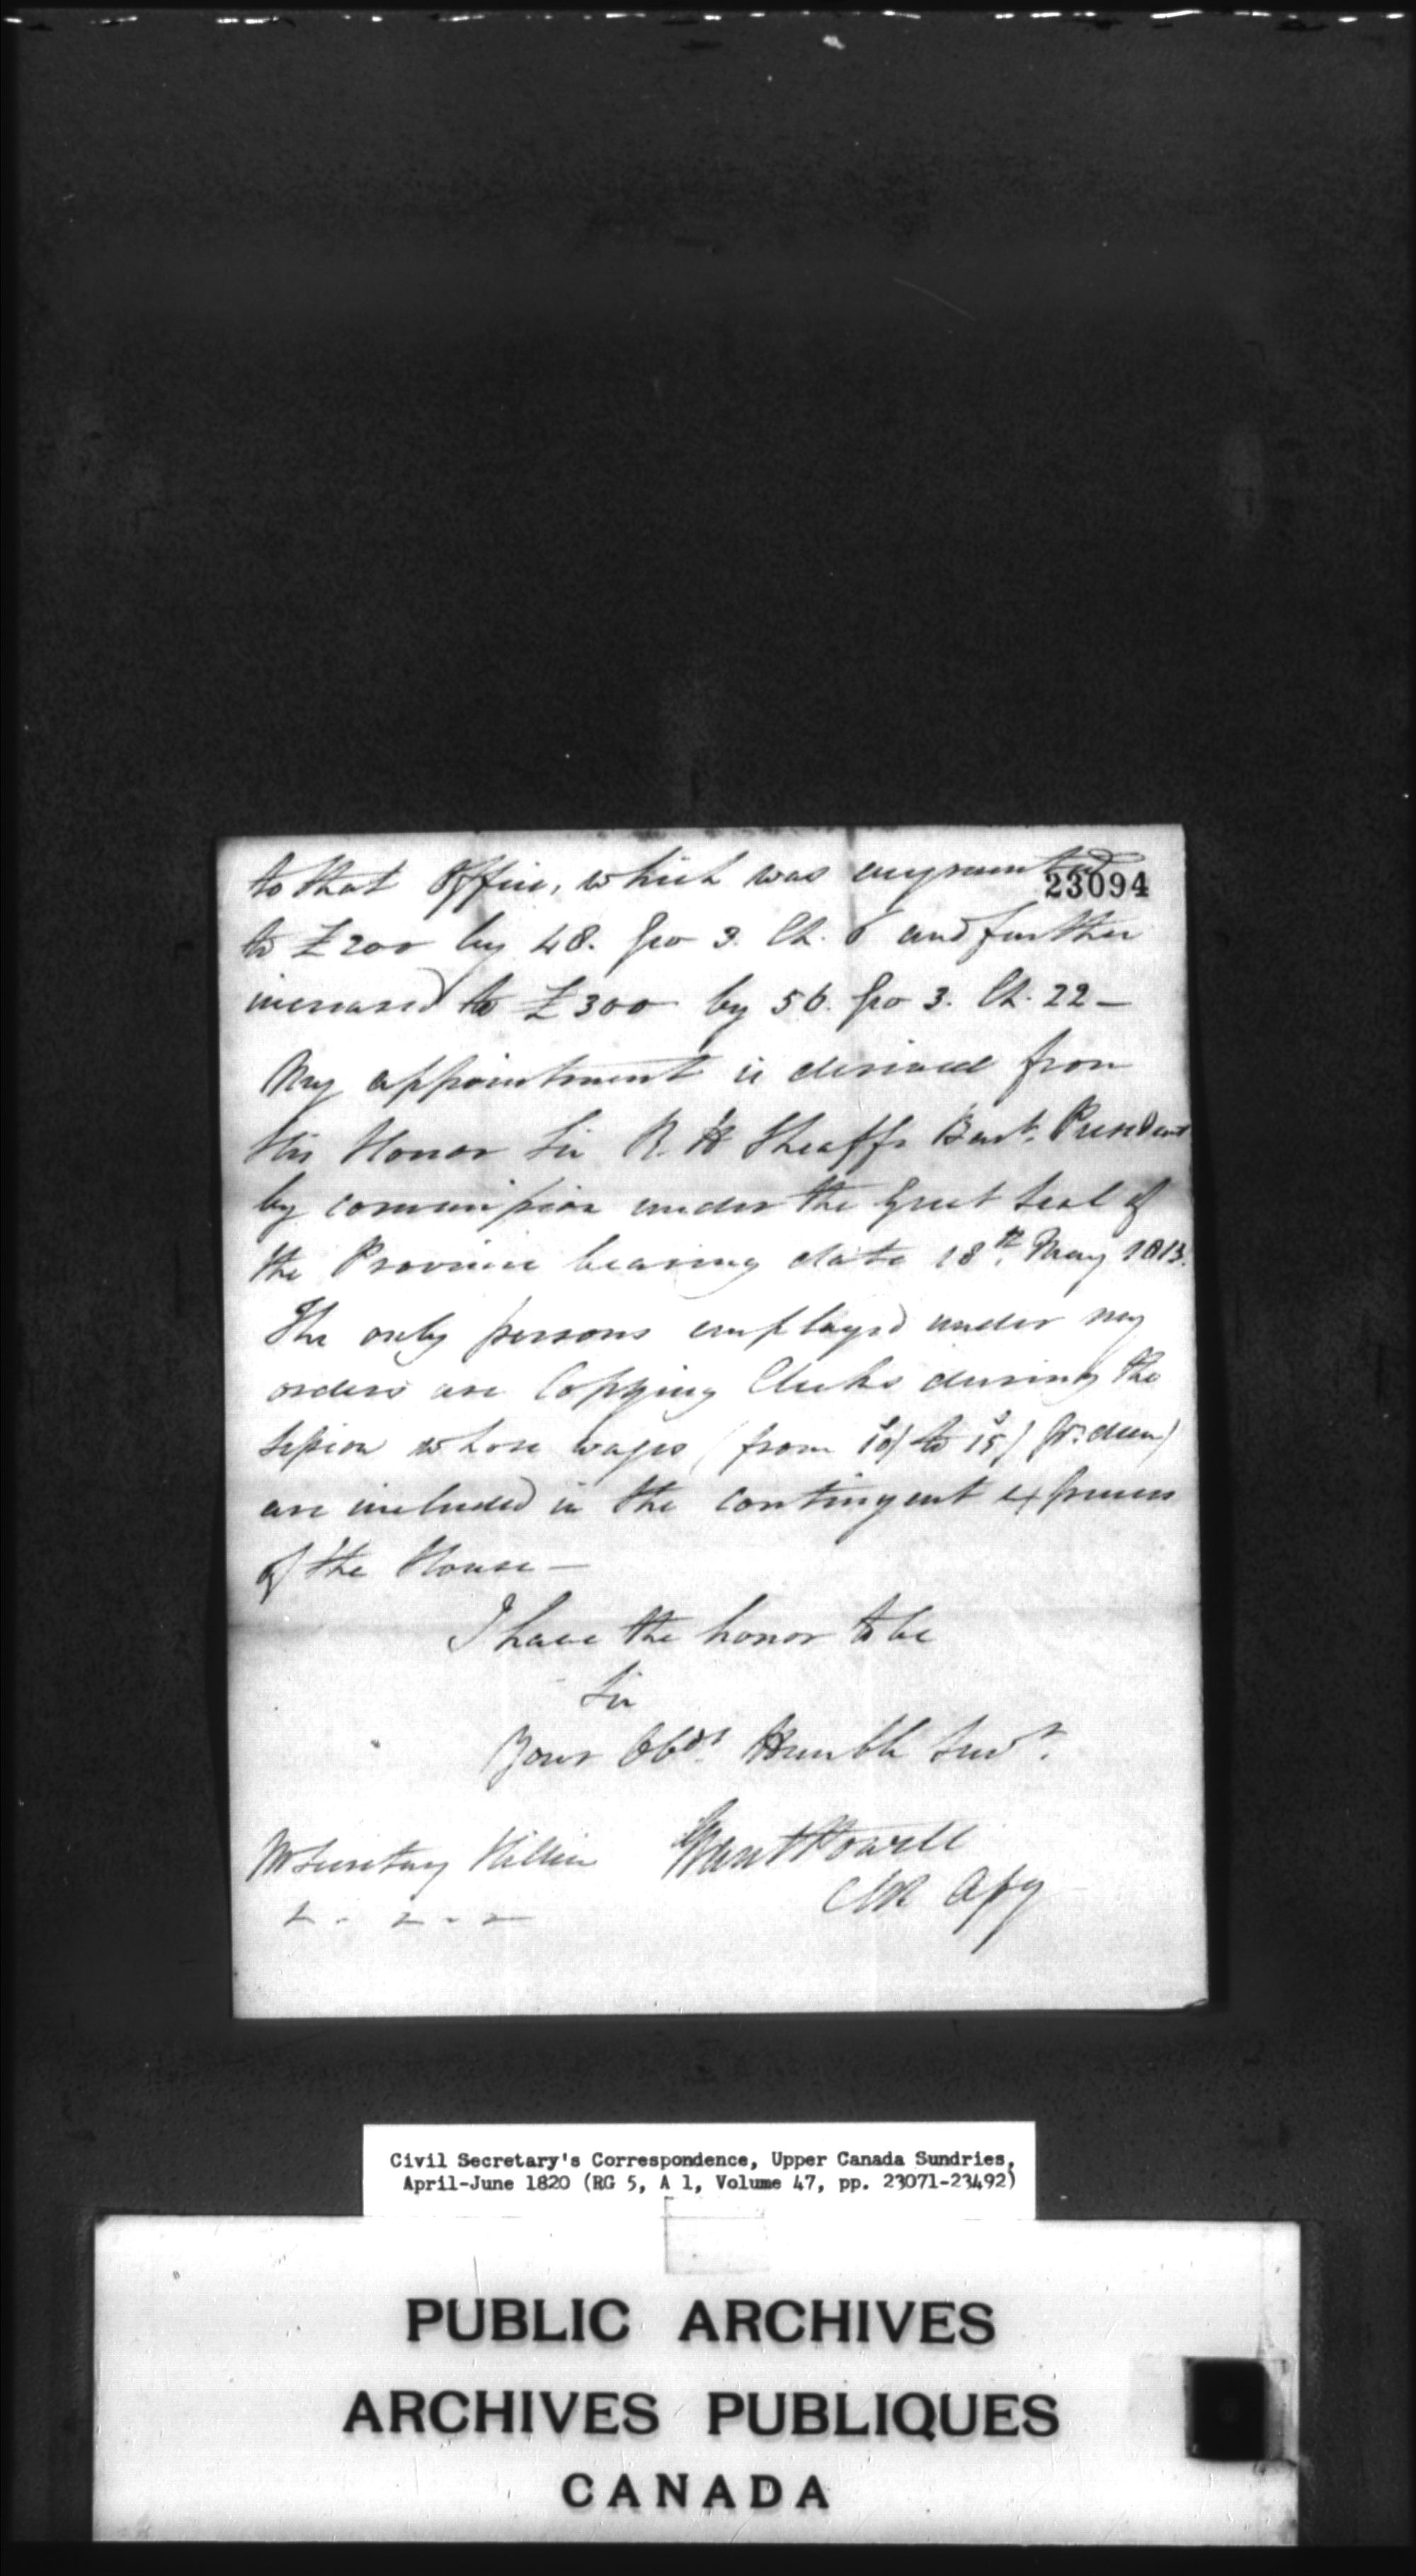 to that Office, which was augmented
23094
to £200 by 48. Geo 3. Ch. 8 and further
increased to £300 by 56. Geo 3. Ch. 22 –
My appointment is derived from
His Honor Sir R. H Sheaffe Bart. President
by commission under the Great Seal of
the Province bearing date 18th. May 1813.
The only persons employed under my
orders are Copying Clerks during the
Session whose wages (from 10/ to 15/ pr. diem)
are included in the contingent expenses
of the House –
I have the honor to be
Sir
Your Obdt. Humble Servt.
Mr Secretary Hillier
Grant Powell
Clk Assy
Civil Secretary's Correspondence, Upper Canada Sundries,
April-June 1820 (RG 5, A 1, Volume 47, pp. 23071-23492)
PUBLIC ARCHIVES
ARCHIVES PUBLIQUES
CANADA